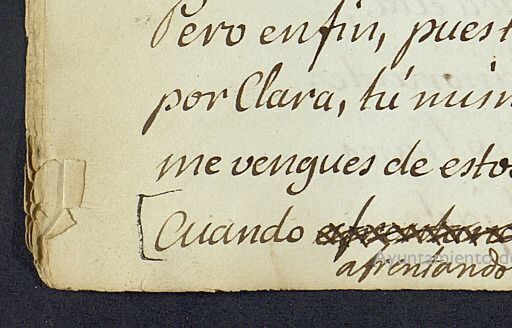 Pero enfin, pues
por Clara, tú mism
me vengues de estos
Cuando
afrentando
Ayuntamiento de